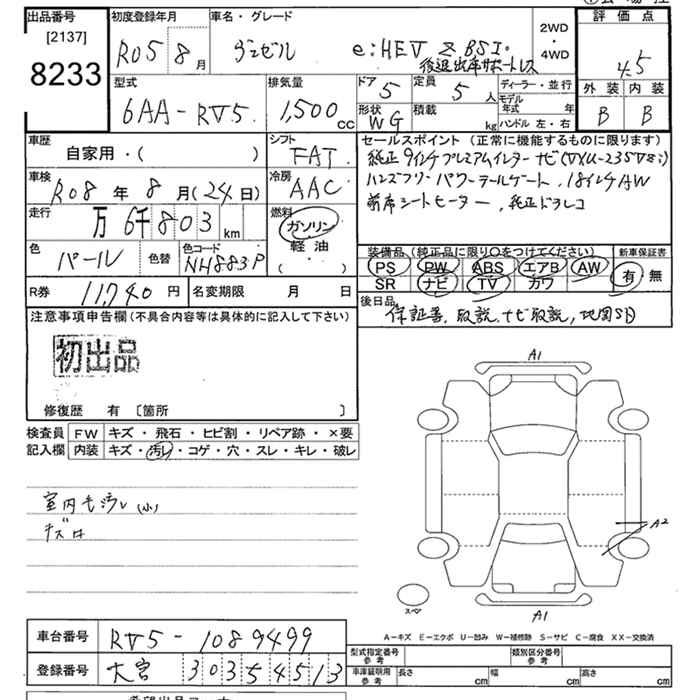 出品番号
[2137]
8233
初度登録年月
R05 8月
車名・グレード
ヴェゼル e:HEV Z BSI。
後退出庫サポートレス
2WD
・
4WD
評価点
4.5
外装 内装
B B
型式
6AA-RV5.
排気量
1,500cc
ドア 5
定員 5人
形状 WG
積載 kg
ディーラー・並行
モデル年式 年
ハンドル 左・右
車歴
自家用・( )
シフト
FAT
車検
R08年8月(24日)
冷房
AAC
走行
万6千803km
燃料
ガソリン
軽油
( ・ )
色 パール
色替
色コード NH883P
R券 11,740円
名変期限 月 日
セールスポイント(正常に機能するものに限ります)
純正9インチプレミアムインターナビ(VXU-235V8i)
ハンズフリーパワーテールゲート、18インチAW
前席シートヒーター、純正ドラレコ
装備品(純正品に限り○をつけてください)
PS PW ABS エアB AW
SR ナビ TV カワ
新車保証書
有 無
後日品
保証書、取説、ナビ取説、地図SD
注意事項申告欄(不具合内容等は具体的に記入して下さい)
初出品
修復歴 有 〔箇所 〕
検査員記入欄
FW キズ・飛石・ヒビ割・リペア跡・×要
内装 キズ・汚レ・コゲ・穴・スレ・キレ・破レ
室内毛汚レ(小)
キズ
A1
A2
スペア
A1
A-キズ E-エクボ U-凹み W-補修跡 S-サビ C-腐食 XX-交換済
車台番号 RV5-1089499
登録番号 大宮 303 そ 4513
型式指定番号 参考
類別区分番号 参考
車庫証明用 参考
長さ cm 幅 cm 高さ cm